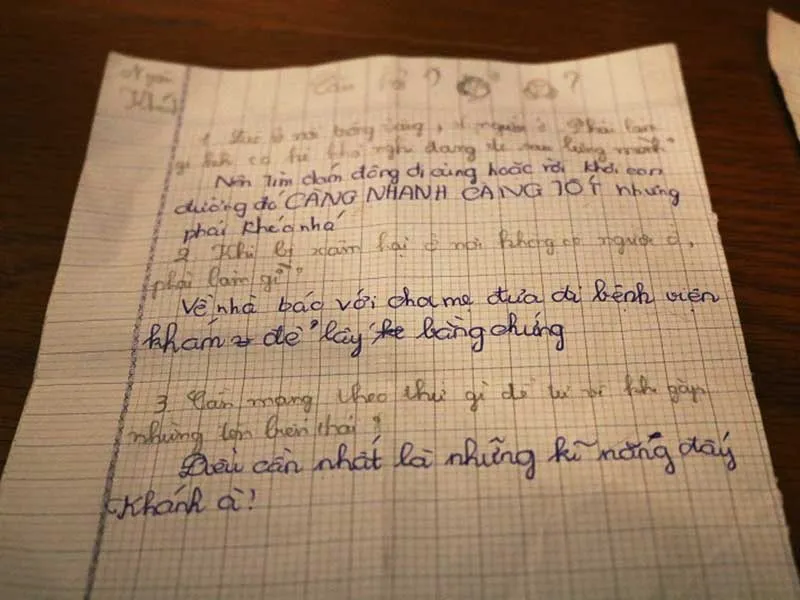 Cần hỏi ? ?
1 Lúc ở nơi bóng vắng, ít người ở. Phải làm
gì khi có kẻ khả nghi đang đi sau lưng mình
Nên tìm đám đông đi cùng hoặc rời khỏi con
đường đó CÀNG NHANH CÀNG TỐT nhưng
phải khéo nhá
2 Khi bị xâm hại ở nơi không có người ở,
phải làm gì?
Về nhà báo với cha mẹ đưa đi bệnh viện
khám để lấy bằng chứng
3 Cần mang theo thứ gì để tự vệ khi gặp
những tên biến thái?
Điều cần nhất là những kĩ năng đấy
Khánh à!